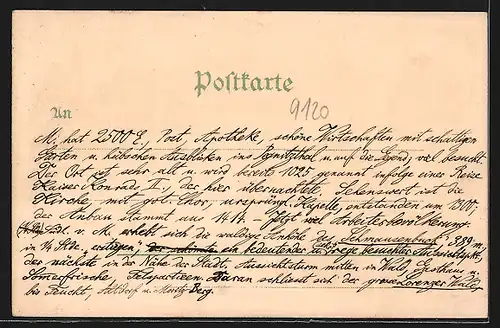 Postkarte
9120
An
M. hat 2500 E, Post, Apotheke, schöne Wirtschaften mit schattigen
Gärten u. hübschen Ausblicken ins Pegnitzthal u. auf die Gegend; viel besucht.
Der Ort ist sehr alt u. wird bereits 1025 genannt infolge einer Reise
Kaiser Konrads II., der hier übernachtete. Sehenswert ist die
Kirche, mit got. Chor, ursprüngl. Kapelle, entstanden um 1300,
der Anbau stammt aus 14. Jh. - Jetzt viel Arbeiterbevölkerung.
südl. v. M. erhebt sich die waldige Anhöhe des "Schmausenbuck", 389 m,
in 1/4 Stde. ersteigen; der schönste ein bedeutender u. besuchter Aussichtspkt.,
der nächste in der Nähe der Stadt. Aussichtsturm mitten im Wald, Gasthaus u.
Sommerfrische, Felspartieen. Daran schliesst sich der grosse Lorenzer Wald
bis Feucht, Altdorf u. Moritz-Berg.